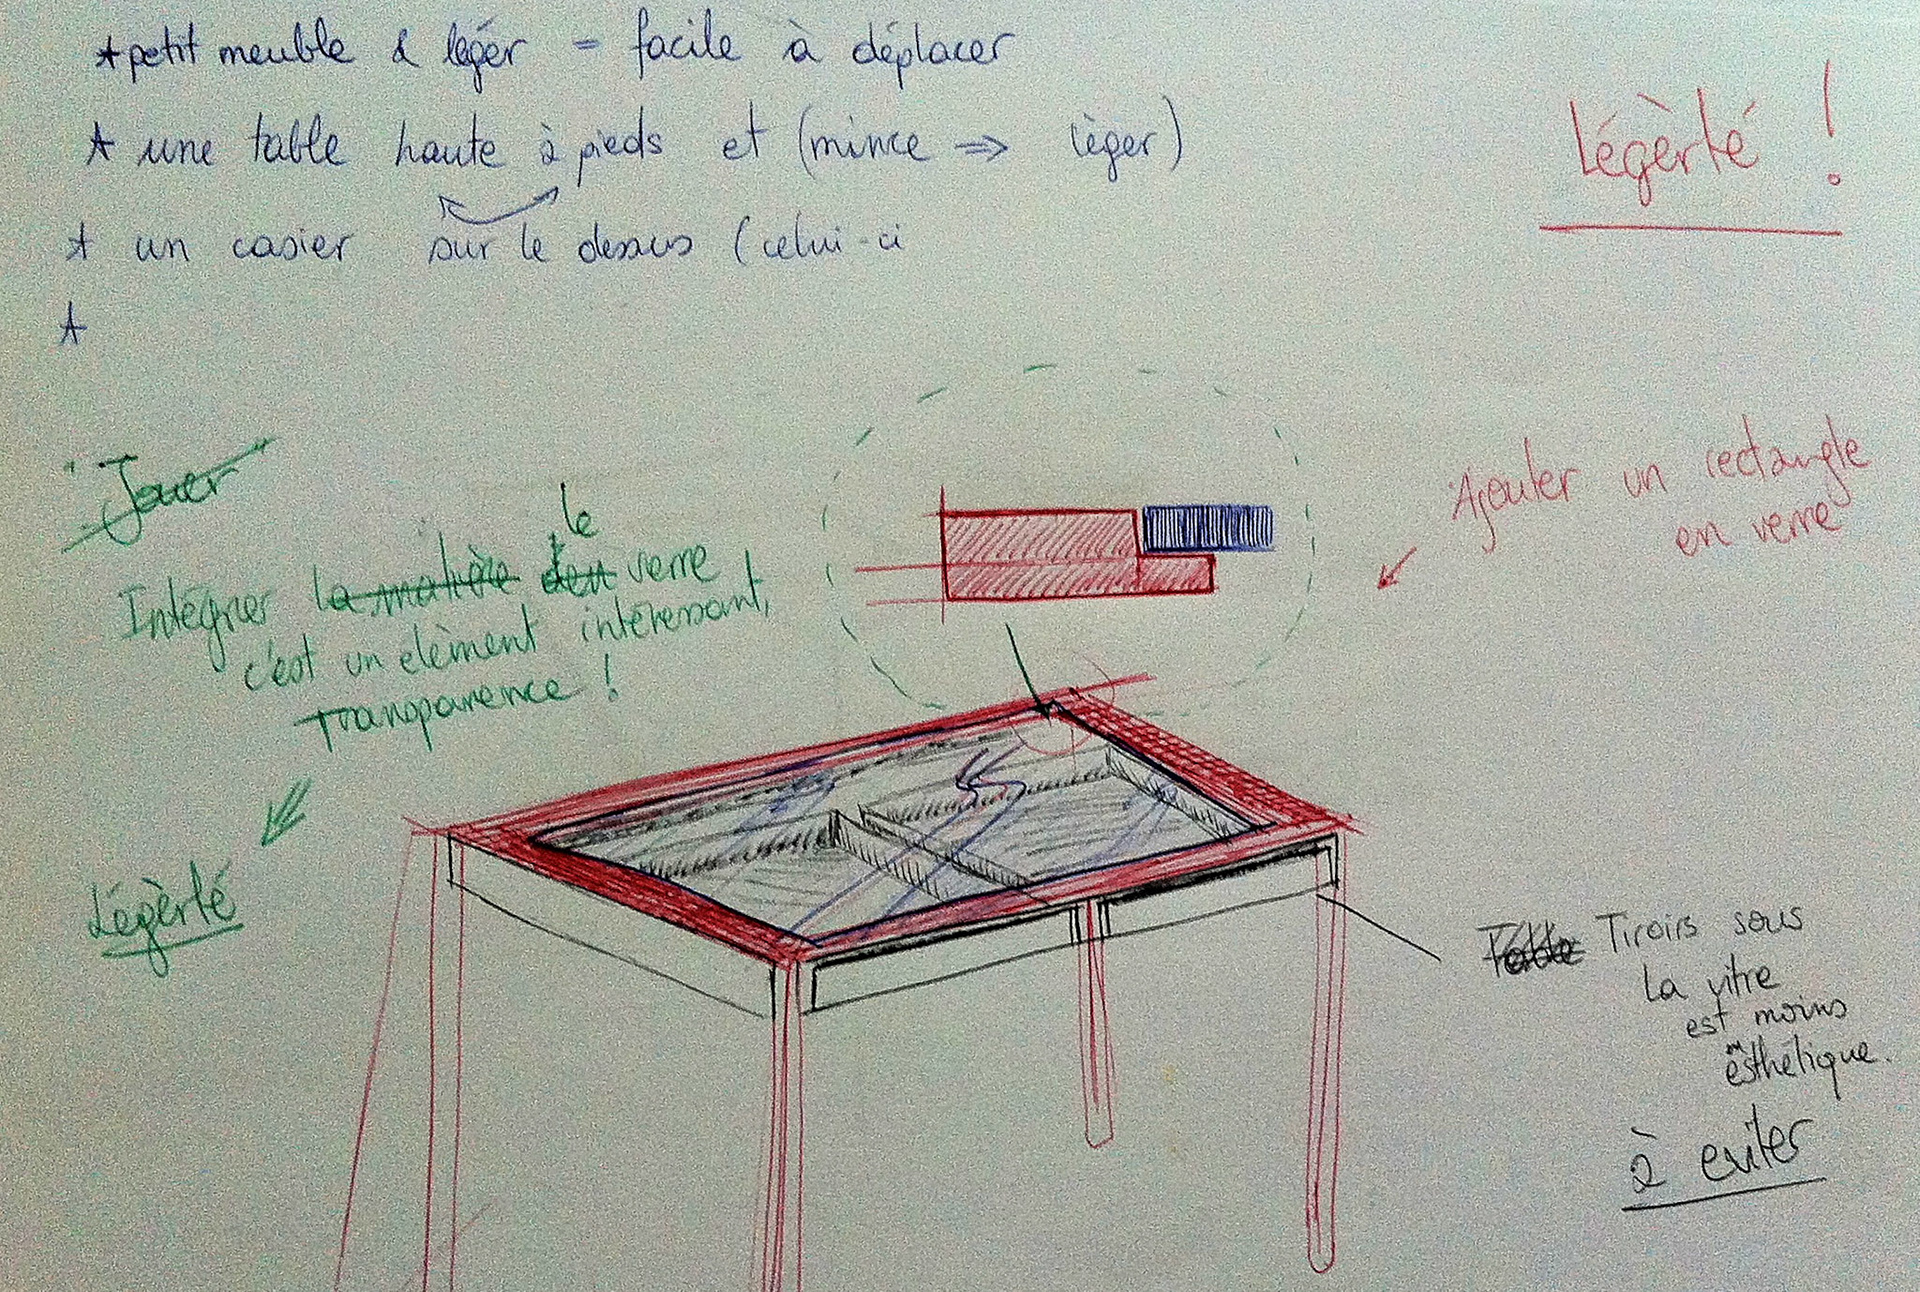 * petit meuble & léger = facile à déplacer
* une table haute à pieds et (mince ⇒ lèger)
* un casier sur le dessus (celui-ci
*
Légèrté !
Jouer
le
Intégrer la matière den verre
c'est un elèment intéressant,
Transparence !
Légèrté
Ajouter un rectangle
en verre
Table Tiroirs sous
La vitre
est moins
esthétique.
à eviter